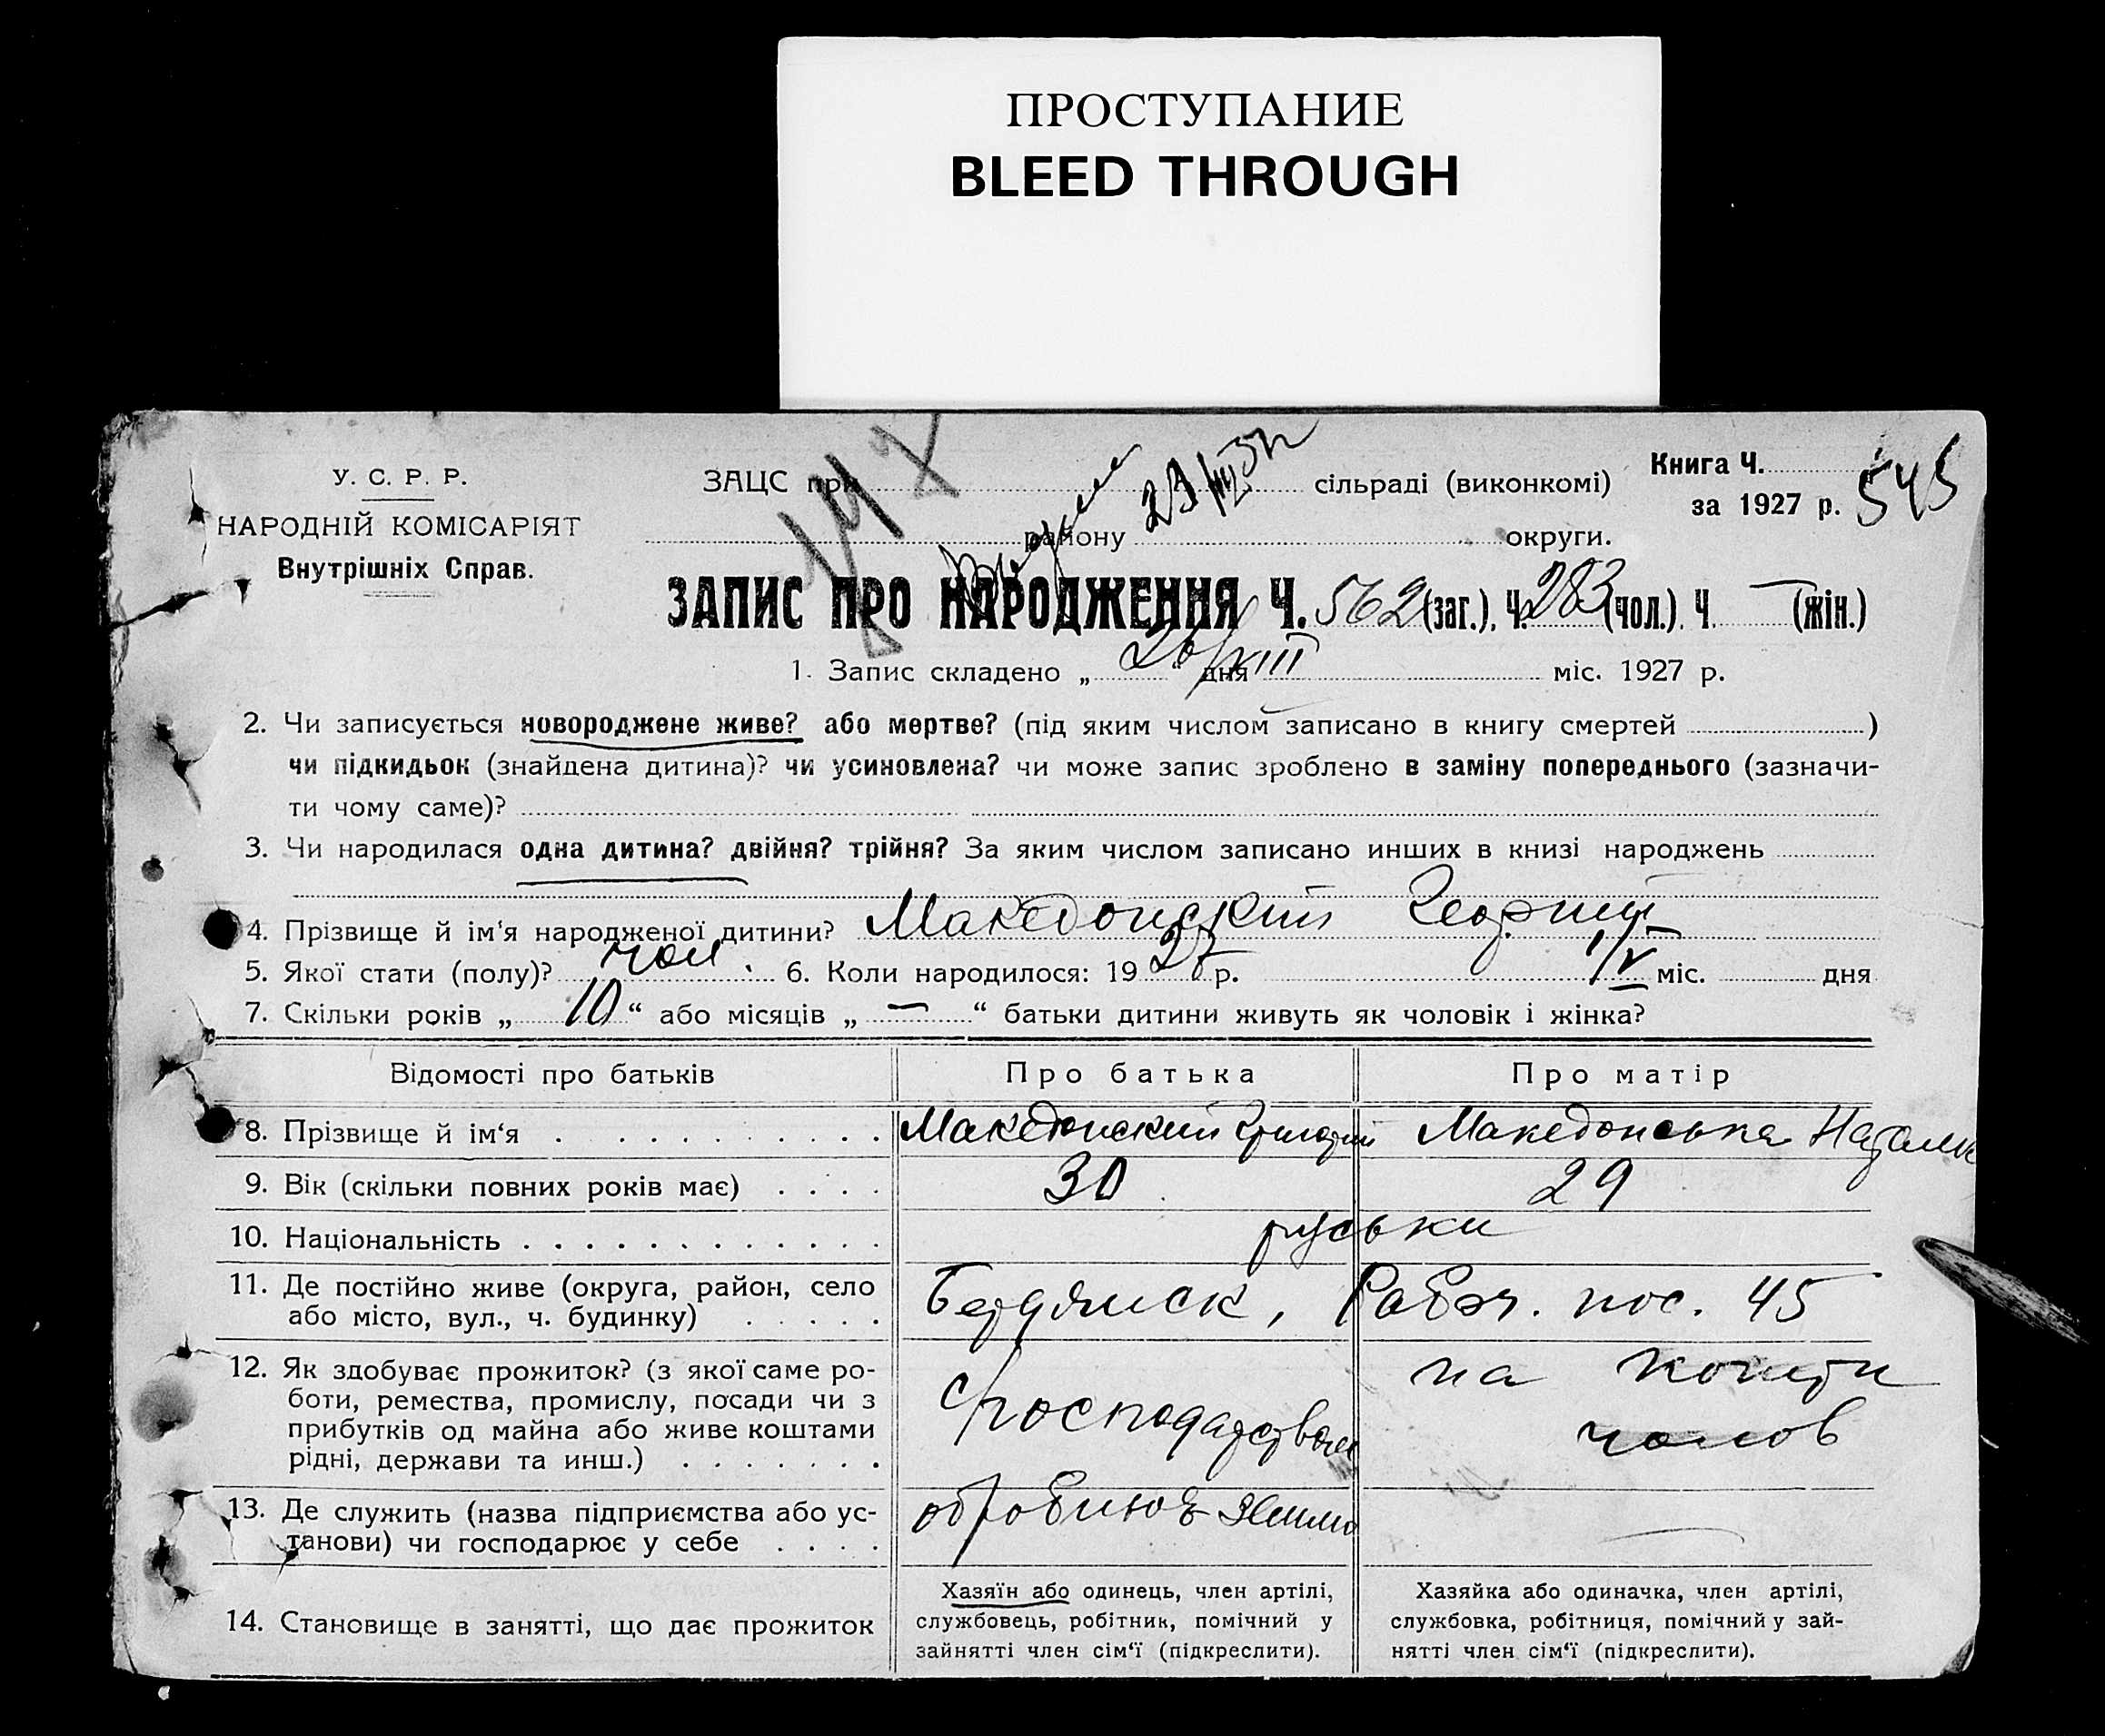 ПРОСТУПАНИЕ
BLEED THROUGH
У. С. Р. Р.
НАРОДНІЙ КОМІСАРІЯТ
Внутрішніх Справ.
ЗАЦС при сільраді (виконкомі)
району округи.
Книга Ч. 545
за 1927 р.
ЗАПИС ПРО НАРОДЖЕННЯ Ч. 562 (заг.). Ч. 283 (чол.). Ч. — (жін.)
1. Запис складено „ 26/VIII “ дня міс. 1927 р.
2. Чи записується новороджене живе? або мертве? (під яким числом записано в книгу смертей )
чи підкидьок (знайдена дитина)? чи усиновлена? чи може запис зроблено в заміну попереднього (зазначи-
ти чому саме)?
3. Чи народилася одна дитина? двійня? трійня? За яким числом записано инших в книзі народжень
4. Прізвище й ім‘я народженої дитини? Македонский Георгий
5. Якої стати (полу)? чол. 6. Коли народилося: 1927 р. 1/V міс. дня
7. Скільки років „ 10 “ або місяців „ — “ батьки дитини живуть як чоловік і жінка?
Відомості про батьків Про батька Про матір
8. Прізвище й ім‘я Македонский Григорий Македонська Наталк
9. Вік (скільки повних років має) 30 29
10. Національність руськи
11. Де постійно живе (округа, район, село
або місто, вул., ч. будинку)
Бердянск, Рабоч. пос. 45
12. Як здобуває прожиток? (з якої саме ро-
боти, ремества, промислу, посади чи з
прибутків од майна або живе коштами
рідні, держави та инш.)
господарством
на кошти
чолов
13. Де служить (назва підприємства або ус-
танови) чи господарює у себе
обробиює землю
14. Становище в занятті, що дає прожиток
Хазяїн або одинець, член артілі,
службовець, робітник, помічний у
зайнятті член сім‘ї (підкреслити).
Хазяйка або одиначка, член артілі,
службовка, робітниця, помічний у зай-
нятті член сім‘ї (підкреслити).